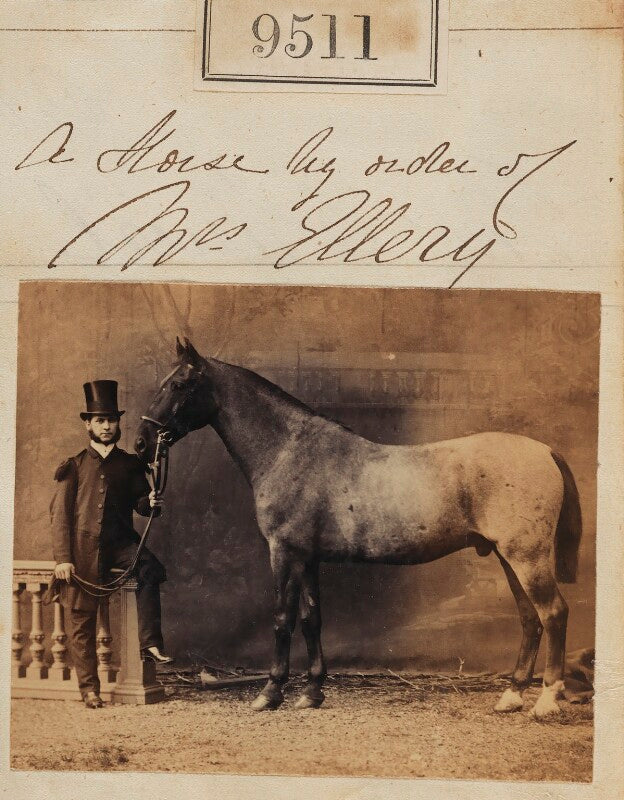 9511
A Horse by order of
Mrs Ellery